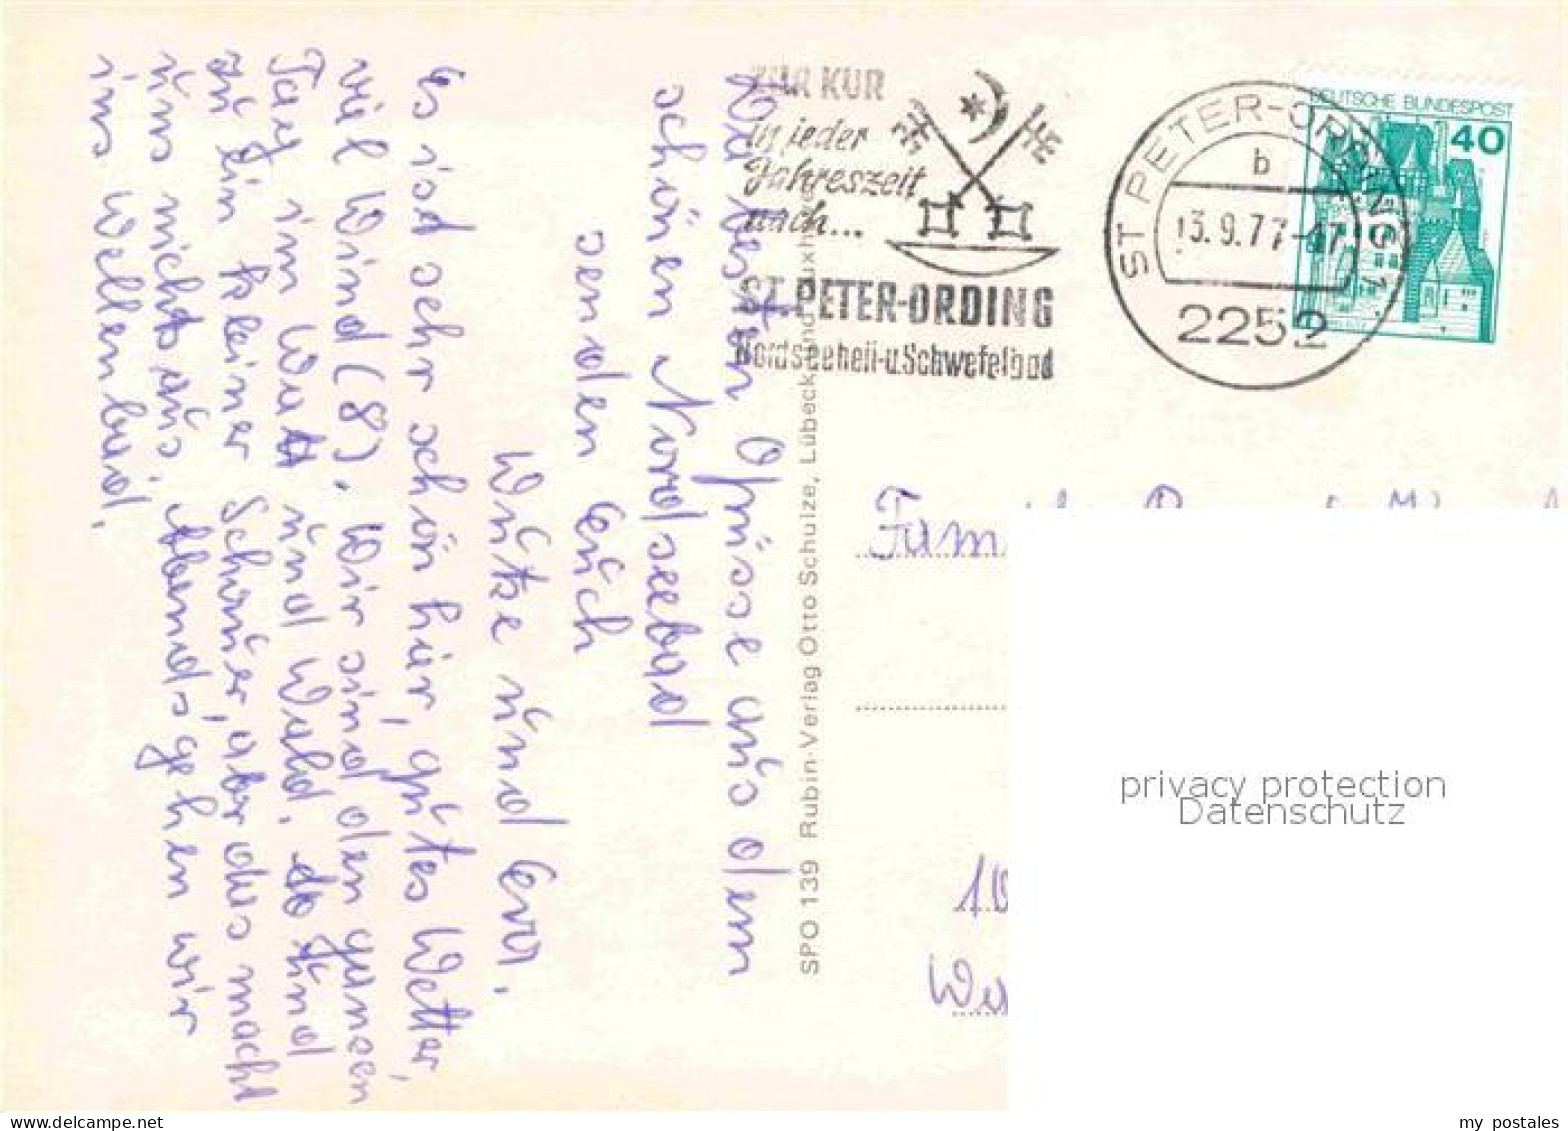 ZUR KUR
in jeder
Jahreszeit
nach...
ST. PETER-ORDING
Nordseeheil-u.Schwefelbad
ST PETER-ORDING 1
b
13.9.77-17
2252
DEUTSCHE BUNDESPOST
40
Die besten Grüsse aus dem
schönen Nordseebad
senden Euch
und Eva.
Es ist sehr schön hier, gutes Wetter,
viel Wind (8). Wir sind den ganzen
Tag im Watt und Wald. So sind
zu ein kleiner Schauer, aber das macht
uns nichts aus. Abends gehen wir
ins Wellenbad.
SPO 139 Rubin-Verlag Otto Schulze, Lübeck und Cuxhaven
privacy protection
Datenschutz
delcampe.net
my_postales